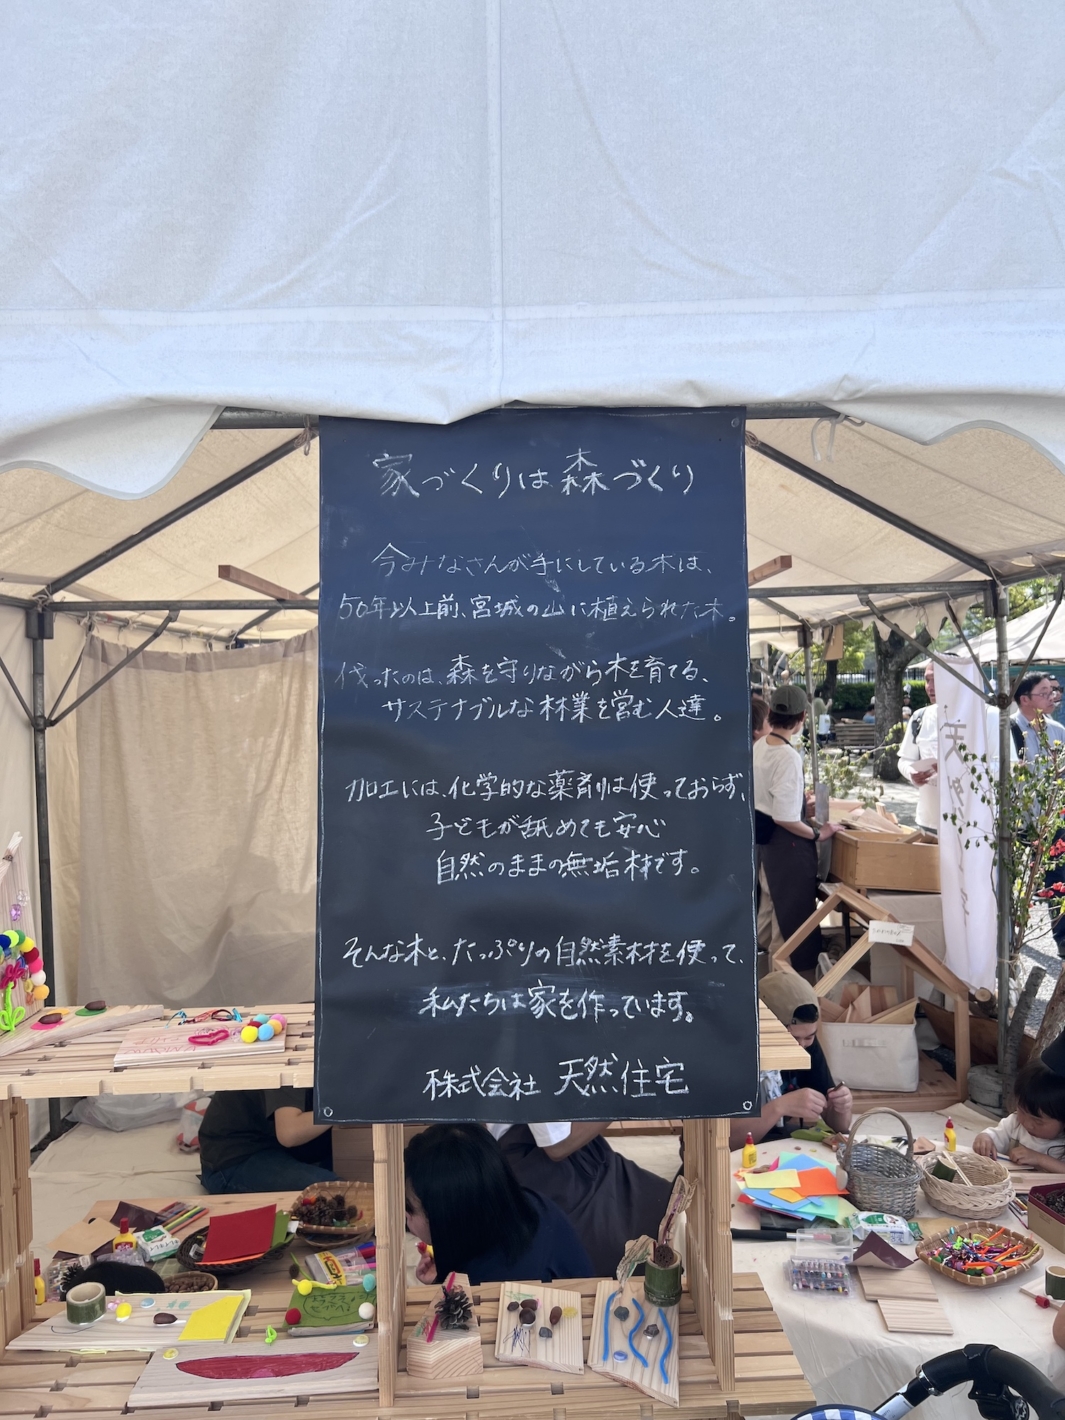 家づくりは森づくり
今みなさんが手にしている木は、
50年以上前、宮城の山に植えられた木。
伐ったのは、森を守りながら木を育てる、
サステナブルな林業を営む人達。
加工には、化学的な薬剤は使っておらず、
子どもが舐めても安心
自然のままの無垢材です。
そんな木と、たっぷりの自然素材を使って、
私たちは家を作っています。
株式会社 天然住宅